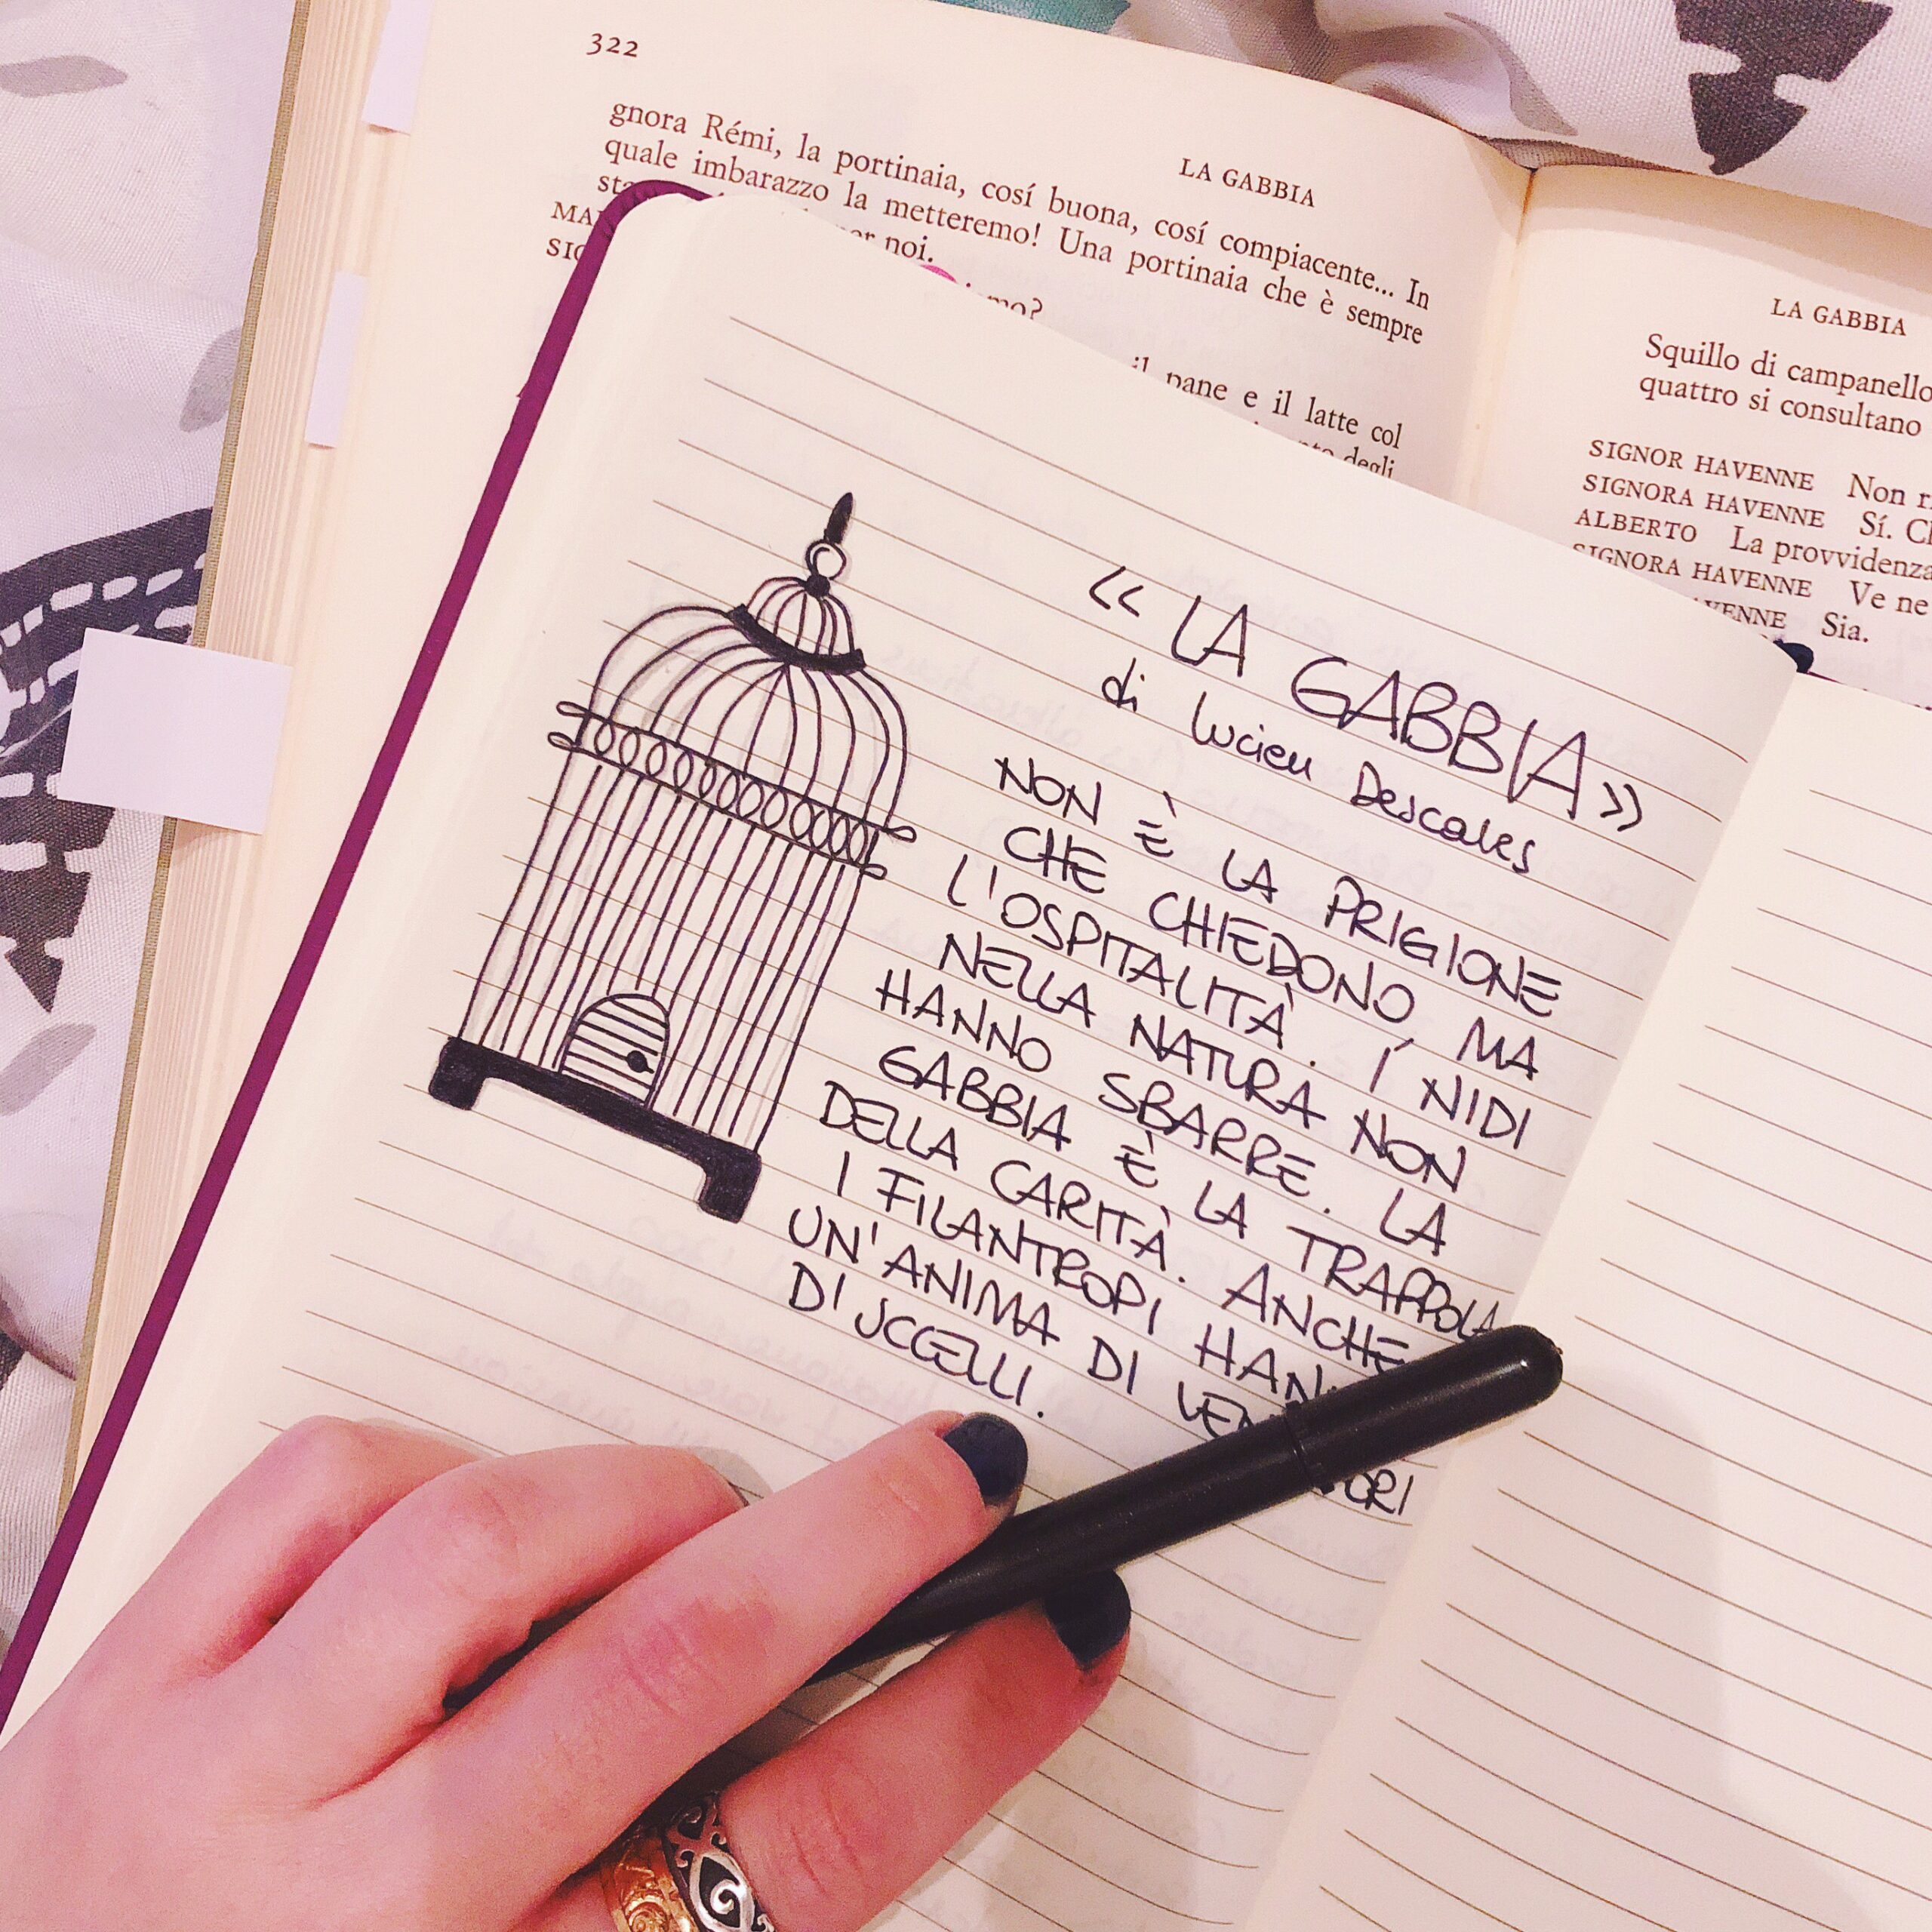 322
LA GABBIA
gnora Rémi, la portinaia, cosí buona, cosí compiacente... In
quale imbarazzo la metteremo! Una portinaia che è sempre
noi.
il pane e il latte col
degli
LA GABBIA
Squillo di campanello
quattro si consultano
SIGNOR HAVENNE Non
SIGNORA HAVENNE Sí.
ALBERTO La provvidenza
SIGNORA HAVENNE Ve ne
Sia.
<< LA GABBIA >>
di Lucien Descaves
NON È LA PRIGIONE
CHE CHIEDONO, MA
L'OSPITALITÀ. I NIDI
NELLA NATURA NON
HANNO SBARRE. LA
GABBIA È LA TRAPPOLA
DELLA CARITÀ. ANCHE
I FILANTROPI
UN'ANIMA DI
DI UCCELLI.